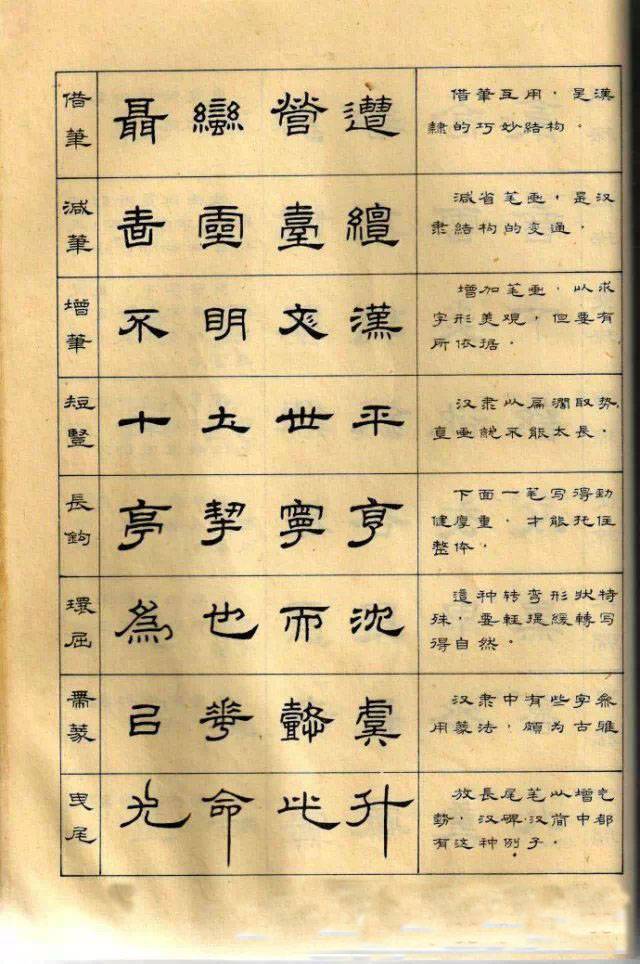 借筆
聶 蠻 營 遭
借筆互用，是漢
隸的巧妙結构。
減筆
靈 臺 纏
減省笔画，是汉
隶結构的变通。
增筆
不 明 漢
增加笔画，以求
字形美观，但要有
所依据。
短豎
十 土 世 平
汉隶以扁濶取势，
直画就不能太長。
長鉤
亭 挈 寧 亨
下面一笔写得劲
健厚重，才能托住
整体。
環屈
為 也 而 沈
這种转弯形状特
殊，要輕提緩轉写
得自然。
帶篆
華 懿 虞
汉隶中有些字参
用篆法，頗为古雅
曳尾
光 命 此 升
放長尾笔以增气
勢，汉碑汉简中都
有这种例子。